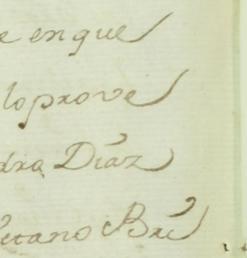 e en que
lo prove
dra Diaz
etano Bru